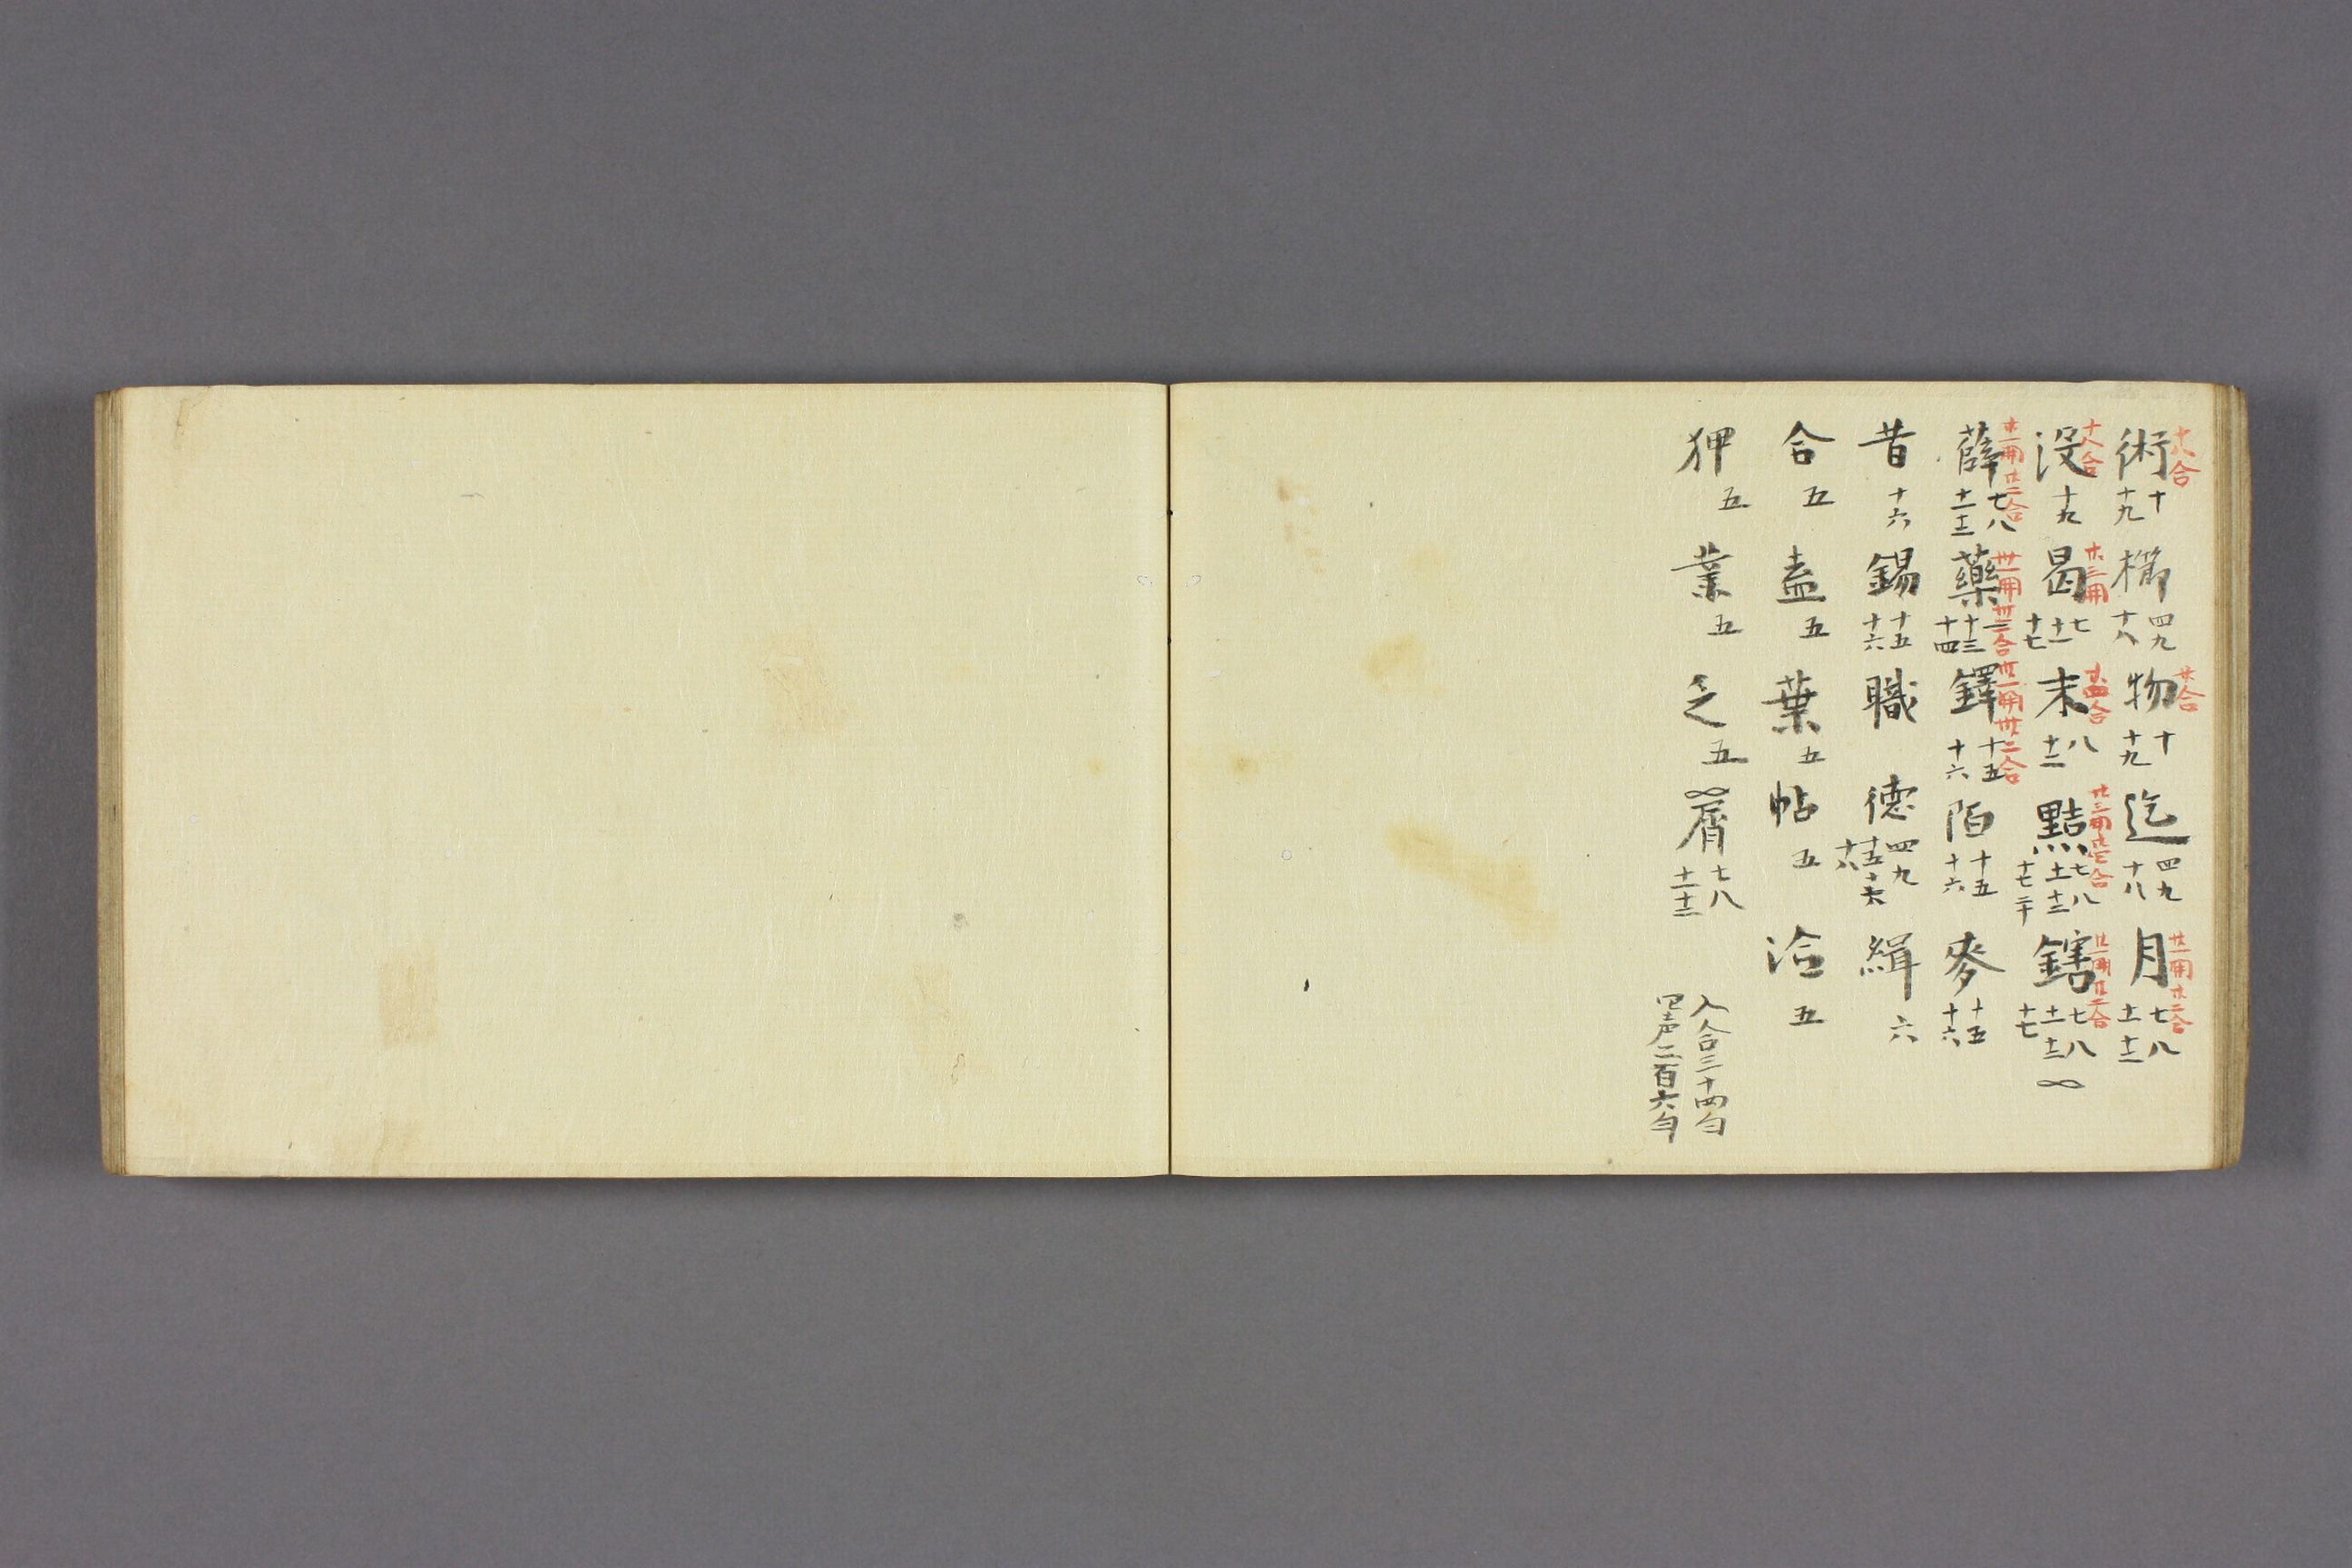 術 十 十九 櫛 四九 十八 物 十 十九 迄 四九 十八 月 七八 十一 十二
十八合 廿合 廿一開 廿二合
没 十 十九 曷 七 十一 十七 末 八 十二 黠 七八 十一 十二 十七 二十 鎋 七八 十一 十二 十七
十八合 廿三開 廿四合 廿一開 廿二合
薛 七八 十一 十二 藥 十三 十四 鐸 十五 十六 陌 十五 十六 麥 十五 十六
廿一開 廿二合 卅一開 卅二合 卅一開 卅二合
昔 十六 錫 十五 十六 職 德 四九 十五 十六 緝 六
合 五 盍 五 葉 五 帖 五 洽 五
狎 五 業 五 乏 五 屑 七八 十一 十二
入合三十四勻
四声二百六勻